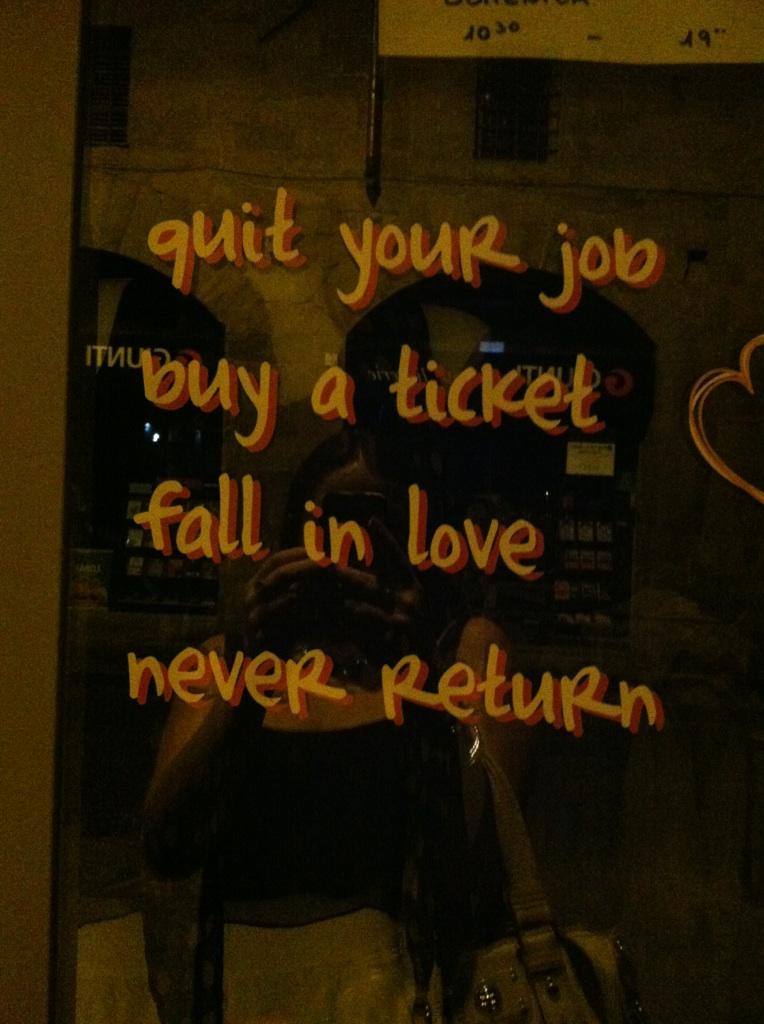 DOMENICA
10³⁰ - 19°°
quit your job
GIUNTI
GIUNTI
buy a ticket
fall in love
never return